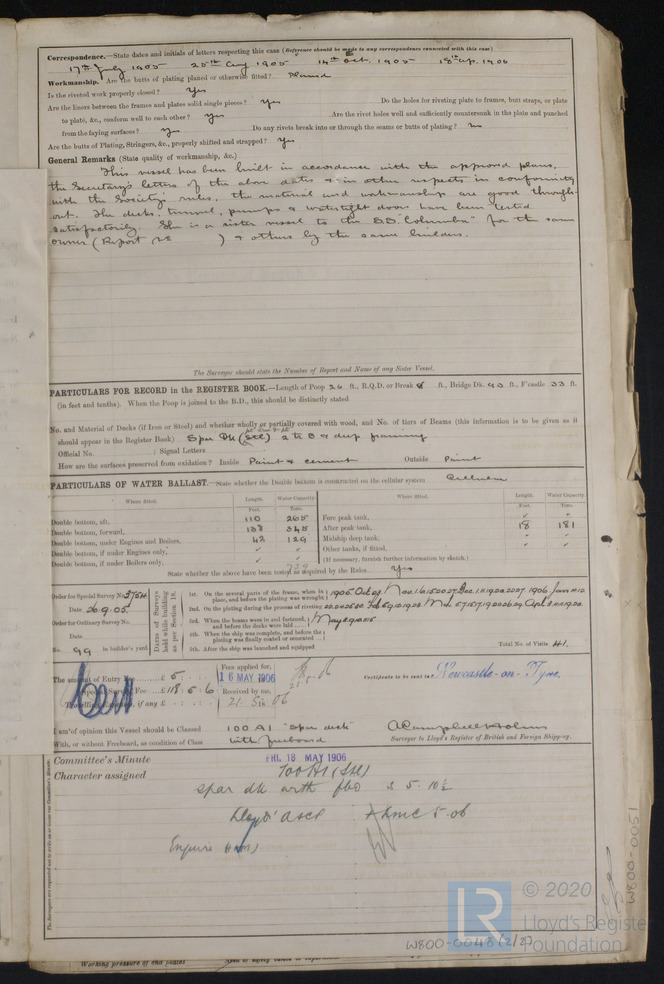 Correspondence.—State dates and initials of letters respecting this case (Reference should be made to any correspondence connected with this case)
17th July 1905 25th Aug 1905 14th Oct. 1905 18th Ap. 1906
Workmanship. Are the butts of plating planed or otherwise fitted? Planed
Is the riveted work properly closed? Yes
Are the liners between the frames and plates solid single pieces? Yes Do the holes for riveting plate to frames, butt straps, or plate
to plate, &c., conform well to each other? Yes Are the rivet holes well and sufficiently countersunk in the plate and punched
from the faying surfaces? Yes Do any rivets break into or through the seams or butts of plating? No
Are the butts of Plating, Stringers, &c., properly shifted and strapped? Yes
General Remarks (State quality of workmanship, &c.)
This vessel has been built in accordance with the approved plans,
the Secretary's letters of the above dates & in other respects in conformity
with the Society's rules, the material and workmanship are good through-
out. The decks, tunnel, pumps & watertight doors have been tested
satisfactorily. She is a sister vessel to the S.S. "Columba" for the same
owner (Report No ) & others by the same builders.
The Surveyor should state the Number of Report and Name of any Sister Vessel.
PARTICULARS FOR RECORD in the REGISTER BOOK.—Length of Poop 26 ft., R.Q.D. or Break ft., Bridge Dk. 90 ft., F'castle 33 ft.
(in feet and tenths). When the Poop is joined to the B.D., this should be distinctly stated
No. and Material of Decks (if Iron or Steel) and whether wholly or partially covered with wood, and No. of tiers of Beams (this information is to be given as it
should appear in the Register Book) Spar Dk (Stl) & deep framing
Official No. ; Signal Letters
How are the surfaces preserved from oxidation? Inside Paint & cement Outside Paint
PARTICULARS OF WATER BALLAST.—State whether the Double bottom is constructed on the cellular system Cellular
Where fitted. Length. Water Capacity. Where fitted. Length. Water Capacity.
Feet. Tons. Feet. Tons.
Double bottom, aft, 110 265 Fore peak tank,
Double bottom, forward, 138 345 After peak tank, 18 181
Double bottom, under Engines and Boilers, 42 129 Midship deep tank,
Double bottom, if under Engines only, Other tanks, if fitted,
Double bottom, if under Boilers only, (If necessary, furnish further information by sketch.)
739
State whether the above have been tested as required by the Rules Yes
Order for Special Survey No. 3754
Date 26.9.05
Order for Ordinary Survey No.
Date
No. 99 in builder's yard
Dates of Surveys held while building as per Section 18.
1st. On the several parts of the frame, when in place, and before the plating was wrought
2nd. On the plating during the process of riveting
3rd. When the beams were in and fastened, and before the decks were laid
4th. When the ship was complete, and before the plating was finally coated or cemented
5th. After the ship was launched and equipped
Total No. of Visits 41.
The amount of Entry Fee £ 5 : :
Special Survey Fee £ 118 . 5 . 6
Travelling Expenses, if any £
Fees applied for,
16 MAY 1906
Received by me,
Certificate to be sent to Newcastle-on-Tyne.
I am of opinion this Vessel should be Classed 100 A1 "Spar deck"
With, or without Freeboard, as condition of Class with freeboard
A Campbell Holms
Surveyor to Lloyd's Register of British and Foreign Shipping.
Committee's Minute FRI. 18 MAY 1906
Character assigned 100A1 (Stl)
Spar dk with fbd 3 5. 10½
Lloyd's A&CP + LMC 5.06
The Surveyors are requested not to write on or across the Committee's Minute.
W800-0051
© 2020
Lloyd's Register
Foundation
LR
W800-0048 (2/2)
Working pressure of end plates